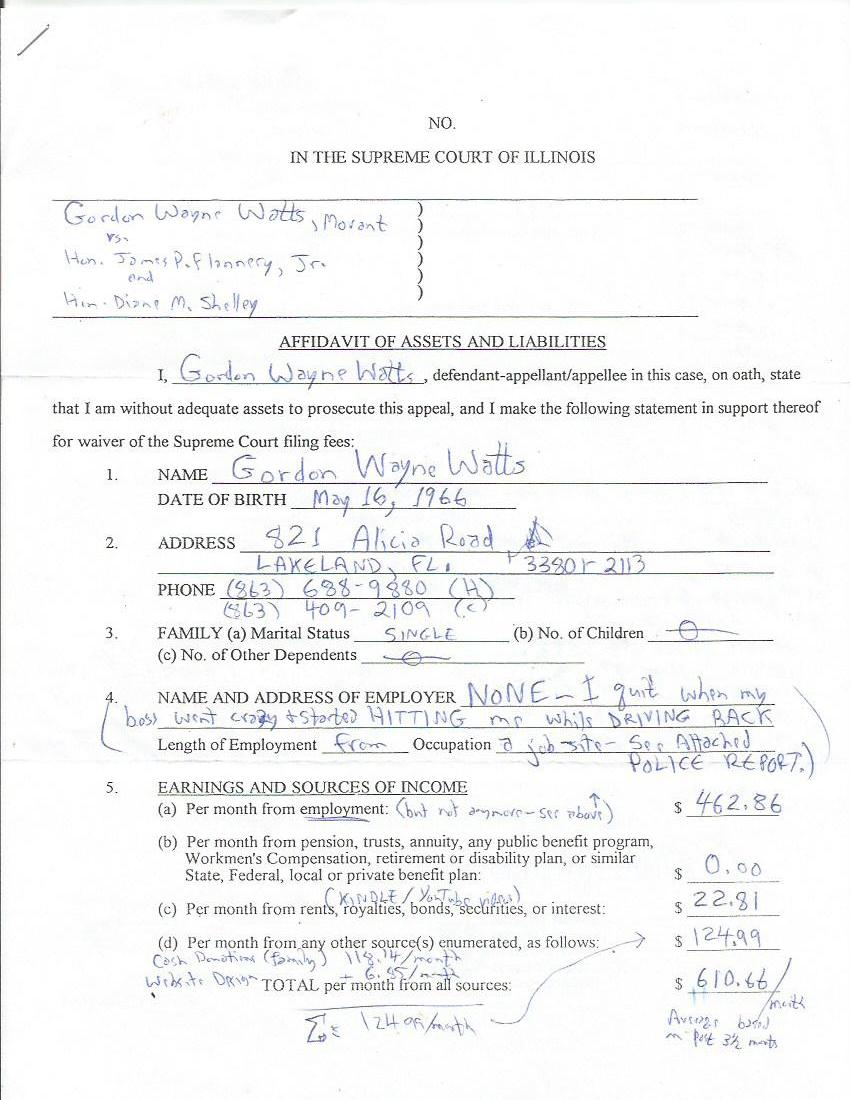 NO.
IN THE SUPREME COURT OF ILLINOIS
Gordon Wayne Watts, Movant )
vs. )
Hon. James P. Flannery, Jr. )
and )
Hon. Diane M. Shelley )
AFFIDAVIT OF ASSETS AND LIABILITIES
I, Gordon Wayne Watts, defendant-appellant/appellee in this case, on oath, state
that I am without adequate assets to prosecute this appeal, and I make the following statement in support thereof
for waiver of the Supreme Court filing fees:
1. NAME Gordon Wayne Watts
DATE OF BIRTH May 16, 1966
2. ADDRESS 821 Alicia Road
LAKELAND, FL. 33801-2113
PHONE (863) 688-9880 (H)
(863) 409-2109 (c)
3. FAMILY (a) Marital Status SINGLE (b) No. of Children 0
(c) No. of Other Dependents 0
4. NAME AND ADDRESS OF EMPLOYER NONE - I quit when my
(boss went crazy & started HITTING me while DRIVING BACK
Length of Employment from Occupation a job-site - See Attached
POLICE REPORT.)
5. EARNINGS AND SOURCES OF INCOME
(a) Per month from employment: (but not anymore - see above ↑) $ 462.86
(b) Per month from pension, trusts, annuity, any public benefit program,
Workmen's Compensation, retirement or disability plan, or similar
State, Federal, local or private benefit plan: $ 0.00
(KINDLE / YouTube videos)
(c) Per month from rents, royalties, bonds, securities, or interest: $ 22.81
(d) Per month from any other source(s) enumerated, as follows: → $ 124.99
Cash Donations (family) 118.14/month
Website Design + 6.85/month
TOTAL per month from all sources: $ 610.66/month
Σ = 124.99/month
Average based
on past 3½ months